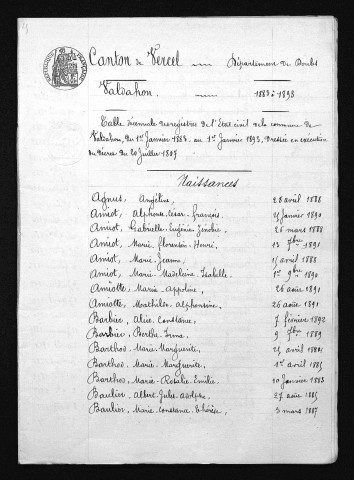 Canton de Vercel Département du Doubs
Valdahon. 1883 à 1893
Table décennale des registres de l'Etat civil de la commune de
Valdahon, du 1er Janvier 1883 au 1er Janvier 1893, Dressée en exécution
du décret du 20 Juillet 1807
Naissances
Agnus, Angéline, 28 avril 1886
Amiot, Alphonse César François, 21 Janvier 1890
Amiot, Gabrielle Eugénie 26 mars 1888
Amiot, Marie Florentin Henri, 13 7bre 1891
Amiot, Marie Jeanne, 15 avril 1888
Amiot, Marie Madeleine Isabelle. 1er 9bre 1890
Amiotte, Marie Appoline, 26 août 1891
Amiotte, Mathilde Alphonsine. 26 août 1891
Barbier, Alice Constance, 7 février 1892
Barbier, Berthe Irma, 9 7bre 1889
Barthod, Marie Marguerite, 25 avril
Barthod, Marie Marguerite, 1er avril 1885
Barthod, Marie Rosalie Emilie, 20 Janvier 1883
Baulier, Albert Jules Adolphe, 27 août 1885
Baulier, Marie Constance Thérèse, 5 mars 1887